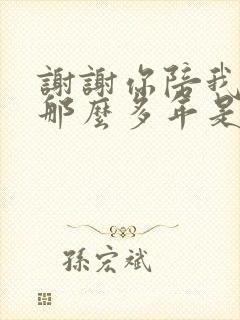 謝謝你陪我
那麼多年是
孫宏斌